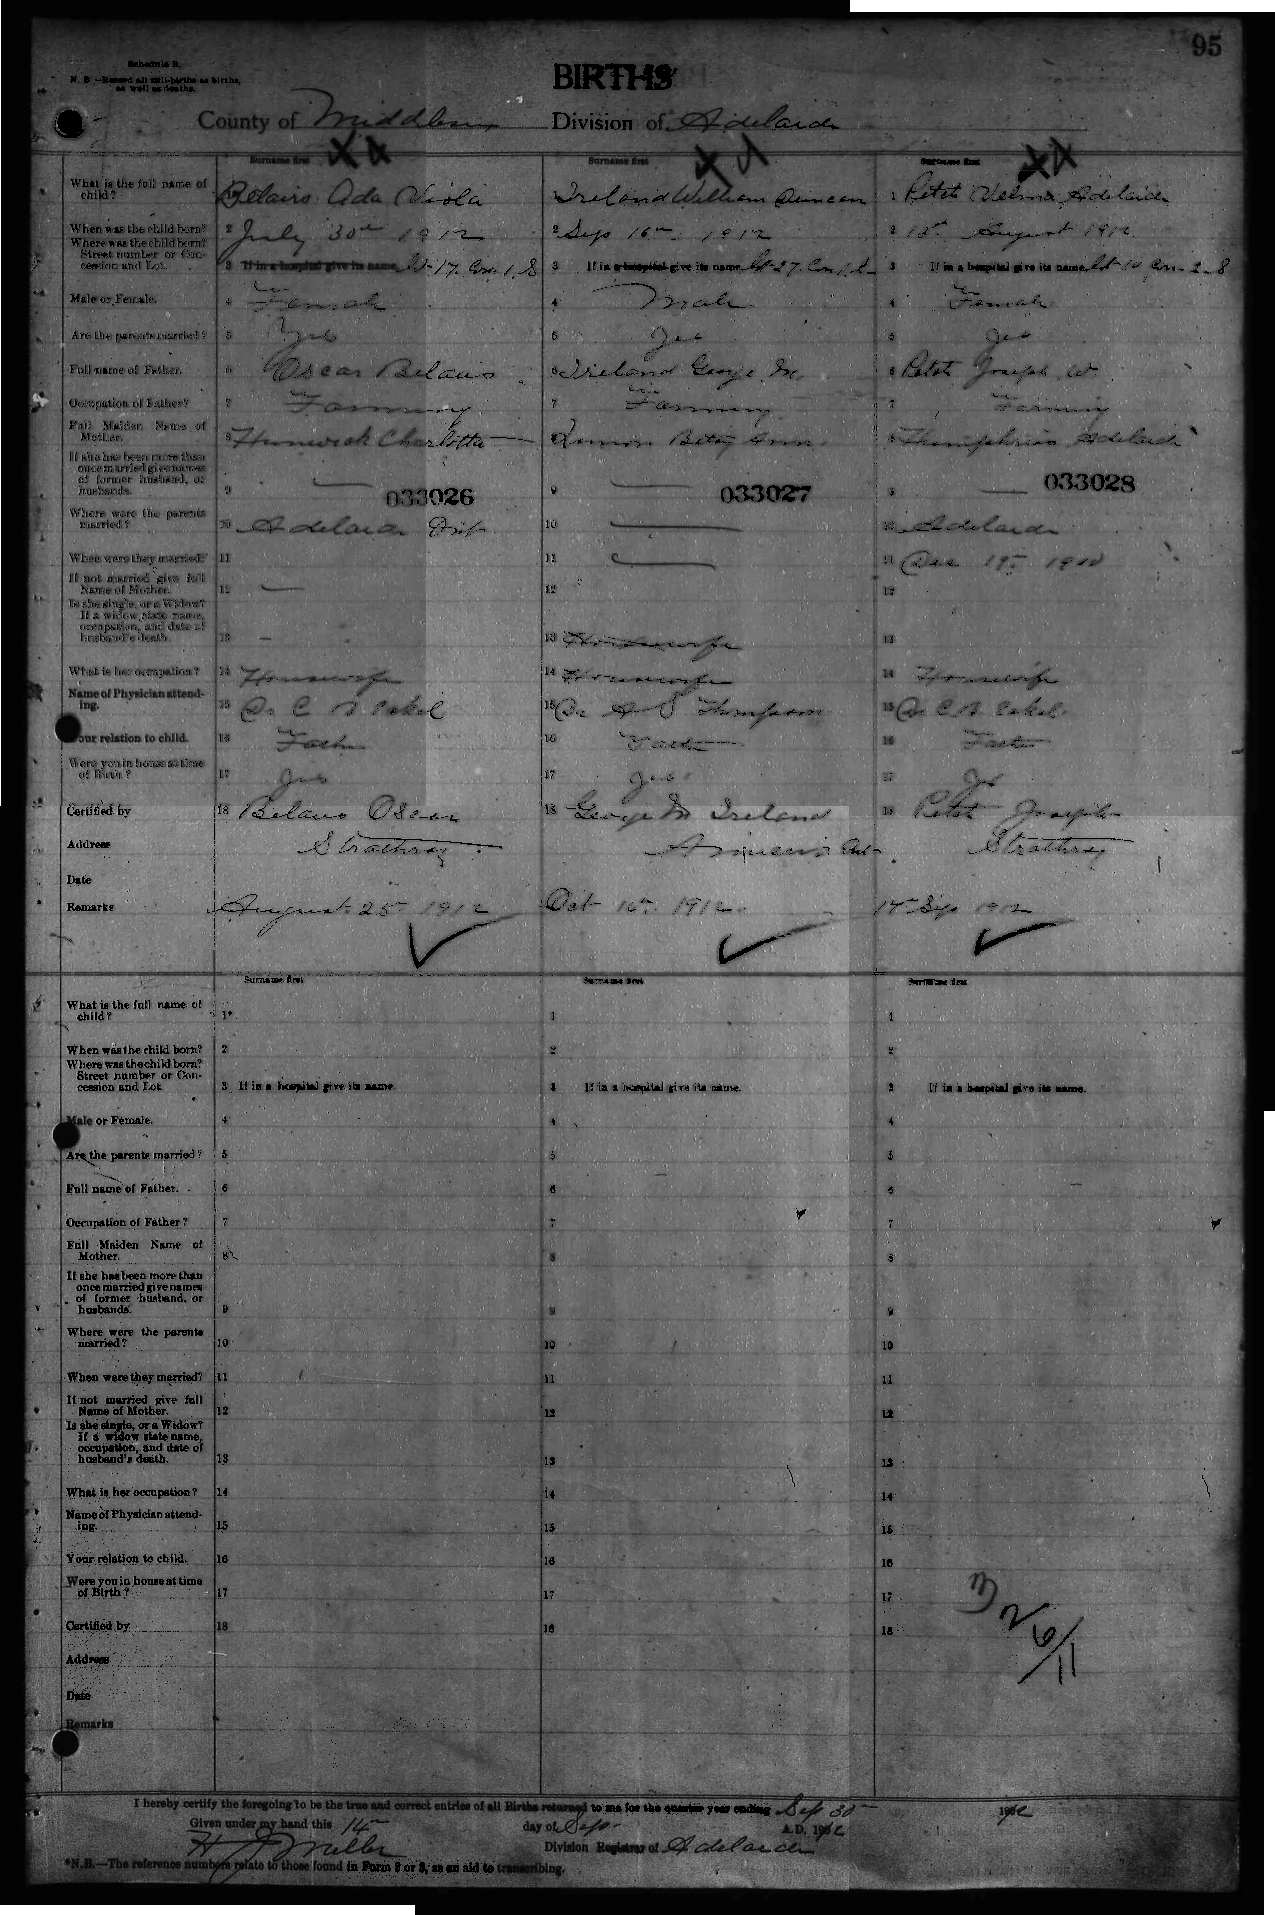 95
Schedule B.
N. B.—Record all still-births as births,
as well as deaths.
BIRTHS
County of Middlesex Division of Adelaide
Surname first Surname first Surname first
What is the full name of
child? Belairs Ada Viola Ireland William Duncan 1 Petet Velma Adelaide
When was the child born? 2 July 30th 1912 2 Sep 16th 1912 2 August 1912
Where was the child born?
Street number or Con-
cession and Lot. 3 If in a hospital give its name. lot 17 Con. 1, S 3 If in a hospital give its name. lot 27 Con 3 If in a hospital give its name. lot 10 Con. 2. S
Male or Female. 4 Female 4 Male 4 Female
Are the parents married? 5 Yes 5 Yes 5 Yes
Full name of Father. 6 Oscar Belairs 6 Ireland George M. 6 Petet Joseph W.
Occupation of Father? 7 Farming 7 Farming 7 Farming
Full Maiden Name of
Mother. 8 Charlotta 8 Betsy Ann 8 Humphries Adelaide
If she has been more than
once married give names
of former husband, or
husbands. 9 033026 9 033027 9 033028
Where were the parents
married? 10 Adelaide 10 10 Adelaide
When were they married? 11 11 11 Dec
If not married give full
Name of Mother. 12 12 12
Is she single, or a Widow?
If a widow state name,
occupation, and date of
husband's death. 13 13 Housewife 13
What is her occupation? 14 Housewife 14 Housewife 14 Housewife
Name of Physician attend-
ing. 15 Dr C 15 Dr A S Thompson 15 Dr C
Your relation to child. 16 Father 16 Father 16 Father
Were you in house at time
of Birth? 17 Yes 17 Yes 17 Yes
Certified by 18 Belairs Oscar 18 George M Ireland 18 Petet Joseph
Address Strathroy Strathroy
Date
Remarks August 25th 1912 Oct 16th 1912 Sep 1912
Surname first Surname first Surname first
What is the full name of
child? 1 1 1
When was the child born? 2 2 2
Where was the child born?
Street number or Con-
cession and Lot. 3 If in a hospital give its name. 3 If in a hospital give its name. 3 If in a hospital give its name.
Male or Female. 4 4 4
Are the parents married? 5 5 5
Full name of Father. 6 6 6
Occupation of Father? 7 7 7
Full Maiden Name of
Mother. 8 8 8
If she has been more than
once married give names
of former husband, or
husbands. 9 9 9
Where were the parents
married? 10 10 10
When were they married? 11 11 11
If not married give full
Name of Mother. 12 12 12
Is she single, or a Widow?
If a widow state name,
occupation, and date of
husband's death. 13 13 13
What is her occupation? 14 14 14
Name of Physician attend-
ing. 15 15 15
Your relation to child. 16 16 16
Were you in house at time
of Birth? 17 17 17
Certified by 18 18 18
Address
Date
Remarks
I hereby certify the foregoing to be the true and correct entries of all Births returned to me for the quarter year ending Sep 30th 1912
Given under my hand this 14th day of Sep. A.D. 1912
H J Miller Division Registrar of Adelaide
*N.B.—The reference numbers relate to those found in Form 2 or 3, as an aid to transcribing.